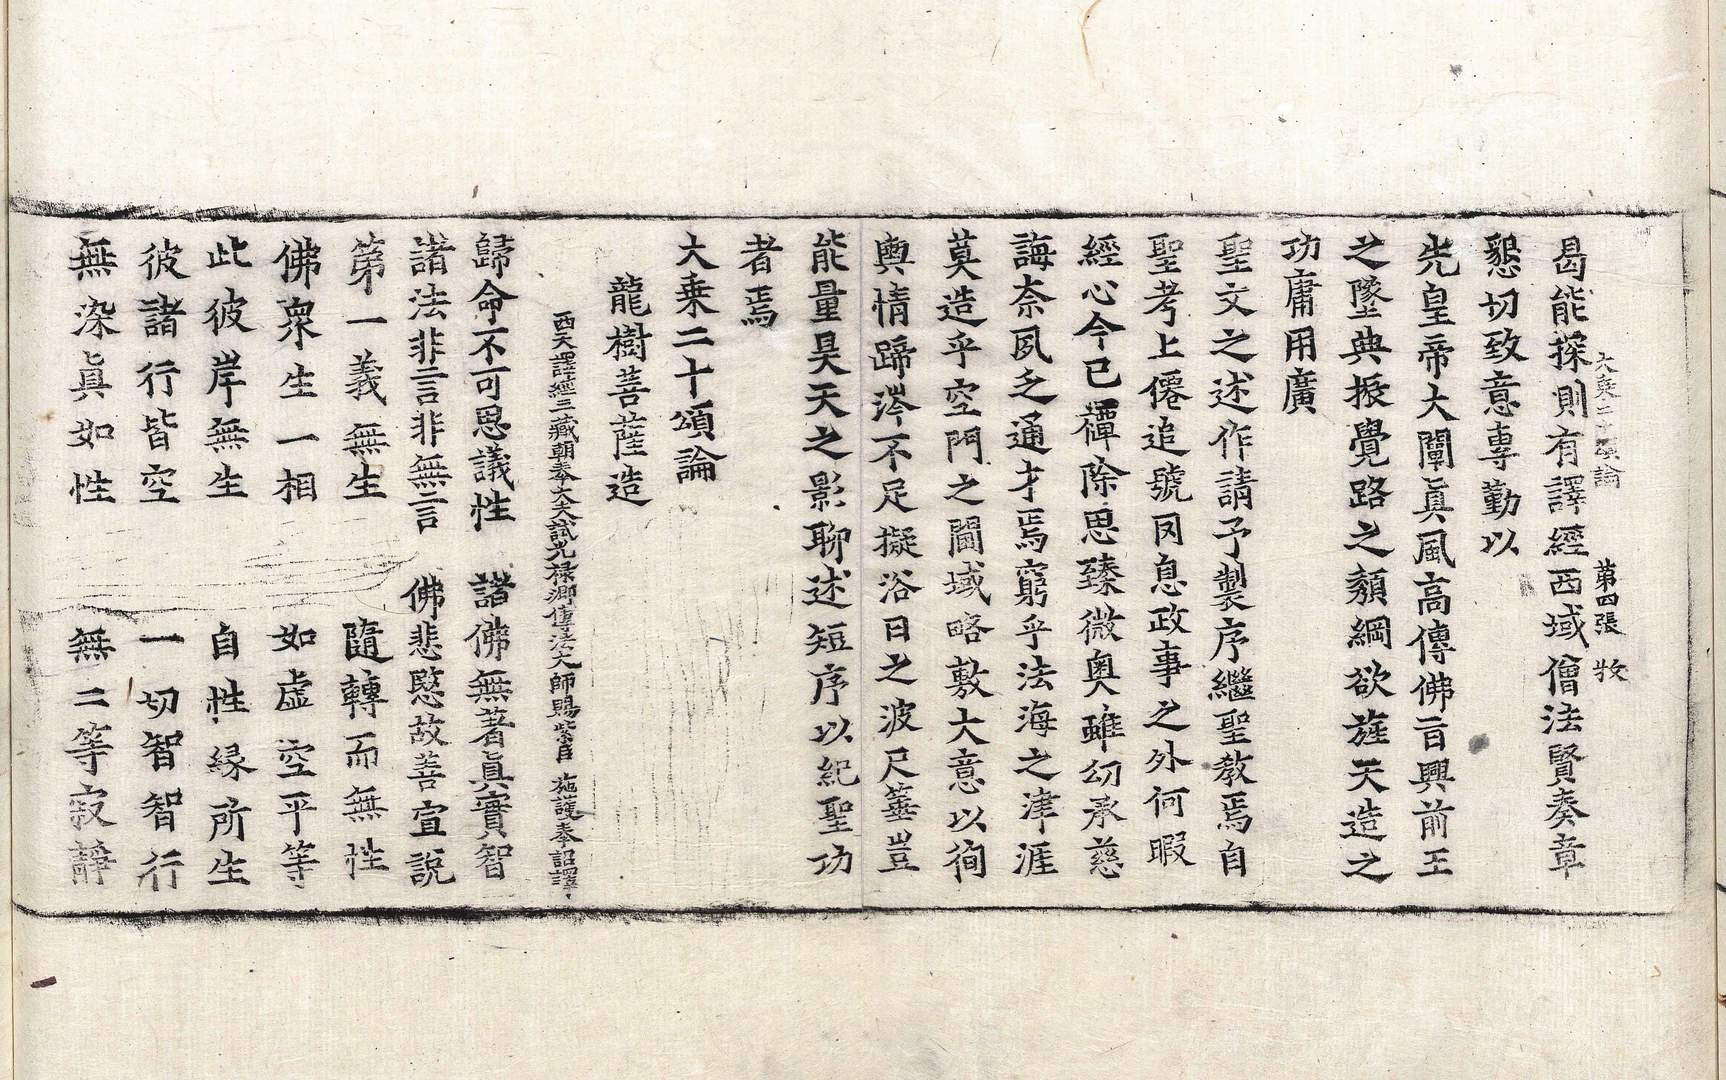 大乘二十頌論　第四張　牧
曷能探則有譯經西域僧法賢奏章
懇切致意專勤以
先皇帝大闡眞風高傳佛旨興前王
之墜典振覺路之頹綱欲旌天造之
功庸用廣
聖文之述作請予製序繼聖教焉自
聖考上僊追號罔息政事之外何暇
經心今已禫除思臻微奧雖幼承慈
誨柰夙乏通才焉窮乎法海之津涯
莫造乎空門之閫域略敷大意以徇
輿情蹄涔不足擬浴日之波尺箠豈
能量昊天之影聊述短序以紀聖功
者焉
大乘二十頌論
龍樹菩薩造
西天譯經三藏朝奉大夫試光祿卿傳法大師賜紫臣施護奉　詔譯
歸命不可思議性　諸佛無著眞實智
諸法非言非無言　佛悲愍故善宣說
第一義無生　隨轉而無性
佛衆生一相　如虛空平等
此彼岸無生　自性緣所生
彼諸行皆空　一切智智行
無染眞如性　無二等寂靜